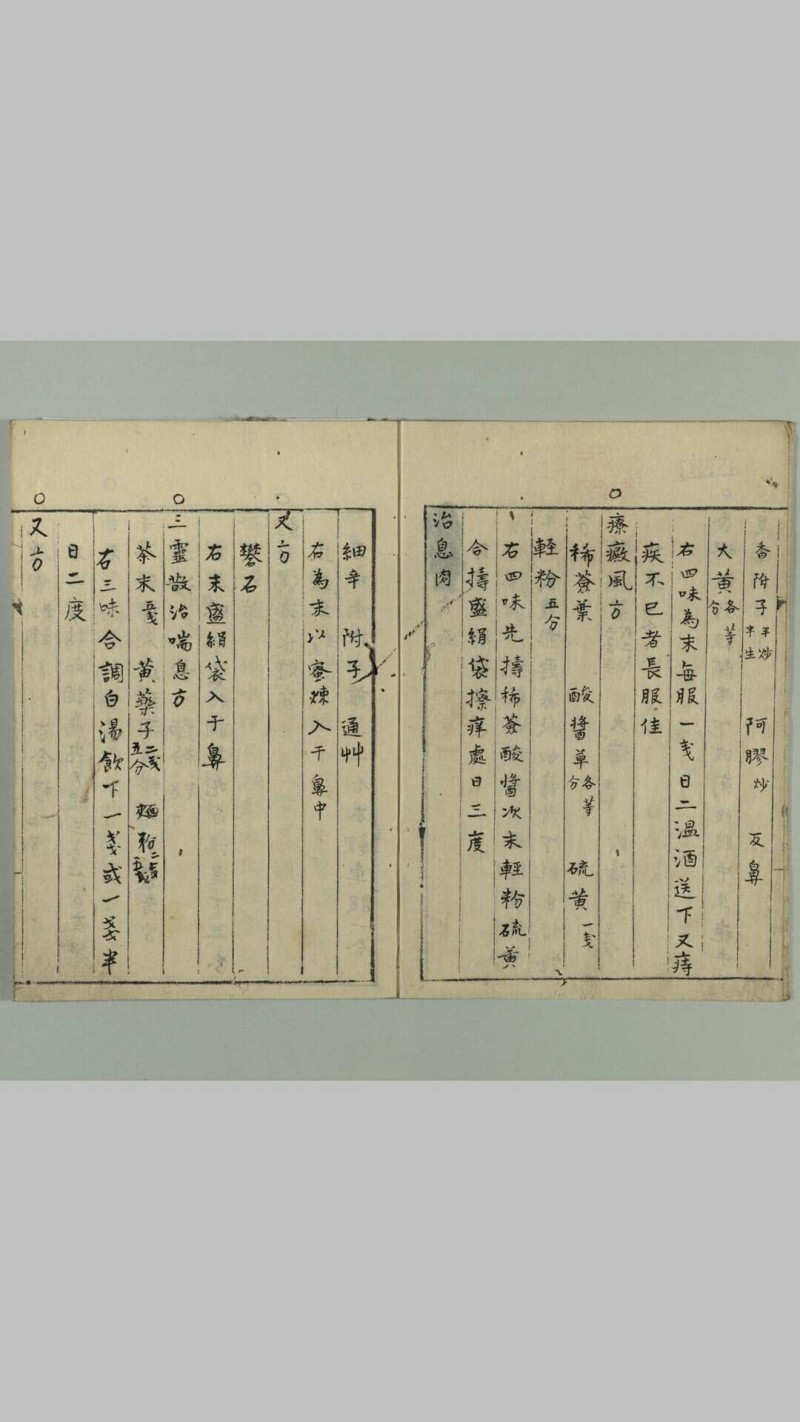 香附子半炒半生 阿膠炒 反鼻
大黃各等分
右四味為末每服一戔日二温酒送下又痔
疾不已者長服佳
療癜風方
稀薟葉 酸醬草各等分 硫黄一戔
輕粉五分
右四味先擣稀薟酸醬次末輕粉硫黄
合擣盛絹袋擦痒處日三度
治息肉
細辛 附子 通艸
右為末以蜜煉入于鼻中
又方
礬石
右末盛絹袋入于鼻
三靈散治喘息方
茶末 黄藥子二戔五分 麺粉
右三味合調白湯飲下一戔或一戔半
日二度
又方